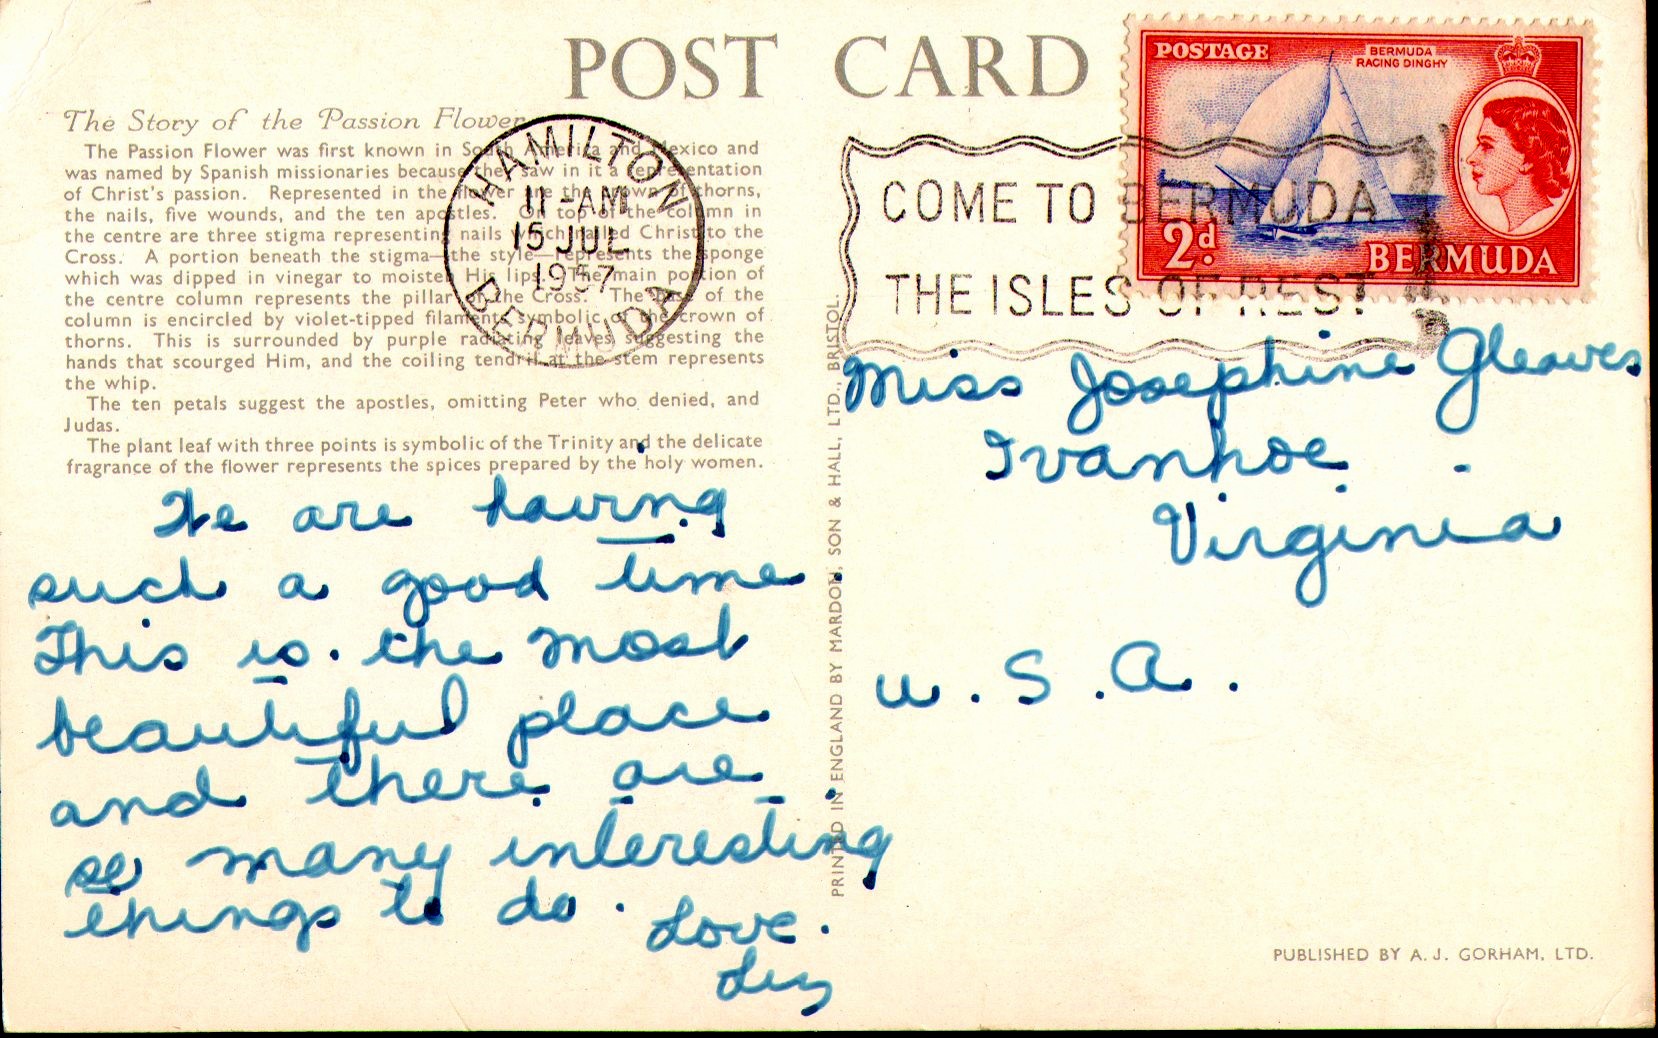 POST CARD
The Story of the Passion Flower
The Passion Flower was first known in South America and Mexico and
was named by Spanish missionaries because they saw in it a representation
of Christ's passion. Represented in the flower are the crown of thorns,
the nails, five wounds, and the ten apostles. On top of the column in
the centre are three stigma representing nails which nailed Christ to the
Cross. A portion beneath the stigma—the style—represents the sponge
which was dipped in vinegar to moisten His lips. The main portion of
the centre column represents the pillar of the Cross. The base of the
column is encircled by violet-tipped filaments symbolic of the crown of
thorns. This is surrounded by purple radiating leaves suggesting the
hands that scourged Him, and the coiling tendril at the stem represents
the whip.
The ten petals suggest the apostles, omitting Peter who denied, and
Judas.
The plant leaf with three points is symbolic of the Trinity and the delicate
fragrance of the flower represents the spices prepared by the holy women.
HAMILTON
11-AM
15 JUL
1957
BERMUDA
We are having
such a good time.
This is the most
beautiful place
and there are
so many interesting
things to do.
Love.
Liz
PRINTED IN ENGLAND BY MARDON, SON & HALL, LTD., BRISTOL.
POSTAGE
BERMUDA
RACING DINGHY
2d.
BERMUDA
COME TO BERMUDA
THE ISLES OF REST
Miss Josephine Gleaves
Ivanhoe
Virginia
U.S.A.
PUBLISHED BY A. J. GORHAM, LTD.